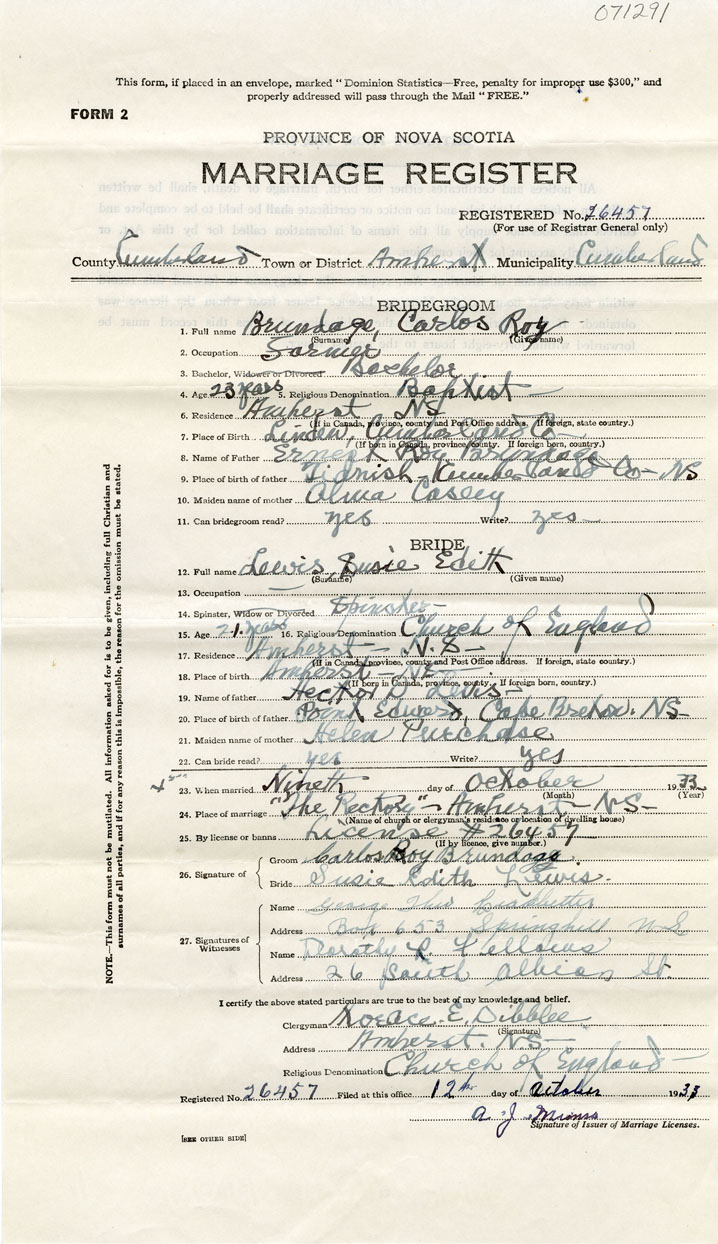 071291
This form, if placed in an envelope, marked "Dominion Statistics—Free, penalty for improper use $300," and
properly addressed will pass through the Mail "FREE."
FORM 2
PROVINCE OF NOVA SCOTIA
MARRIAGE REGISTER
REGISTERED No. 26457
(For use of Registrar General only)
County Cumberland Town or District Amherst Municipality Cumberland
BRIDEGROOM
1. Full name Brundage, Carlos Roy
(Surname) (Given name)
2. Occupation Farmer
3. Bachelor, Widower or Divorced Bachelor
4. Age 23 years 5. Religious Denomination Baptist
6. Residence Amherst NS
(If in Canada, province, county and Post Office address. If foreign, state country.)
7. Place of Birth Linden, Cumberland Co
(If born in Canada, province, county. If foreign born, country.)
8. Name of Father Ernest Roy Brundage
9. Place of birth of father Tidnish Cumberland Co— NS
10. Maiden name of mother Alma Casey
11. Can bridegroom read? yes Write? yes
BRIDE
12. Full name Lewis, Susie Edith
(Surname) (Given name)
13. Occupation —
14. Spinster, Widow or Divorced Spinster
15. Age 21 years 16. Religious Denomination Church of England
17. Residence Amherst— N.S—
(If in Canada, province, county and Post Office address. If foreign, state country.)
18. Place of birth Amherst— NS—
(If born in Canada, province, county. If foreign born, country.)
19. Name of father Hector D. Lewis—
20. Place of birth of father Point Edward, Cape Breton. NS—
21. Maiden name of mother Helen Purchase
22. Can bride read? yes Write? yes
23. When married Nineth day of October 1933
(Month) (Year)
24. Place of marriage "The Rectory"— Amherst— NS—
(Name of church or clergyman's residence or location of dwelling house)
25. By license or banns License #26457
(If by licence, give number.)
26. Signature of
Groom Carlos Roy Brundage.
Bride Susie Edith Lewis.
27. Signatures of Witnesses
Name George
Address Box 653 Springhill N.S
Name Dorothy L Fellows
Address 26 South Albion St.
NOTE.—This form must not be mutilated. All information asked for is to be given, including full Christian and
surnames of all parties, and if for any reason this is impossible, the reason for the omission must be stated.
I certify the above stated particulars are true to the best of my knowledge and belief.
Clergyman Horace. E. Dibblee
(Signature)
Address Amherst. NS—
Religious Denomination Church of England—
Registered No. 26457 Filed at this office 12th day of October 1933
A. J.
Signature of Issuer of Marriage Licenses.
[SEE OTHER SIDE]